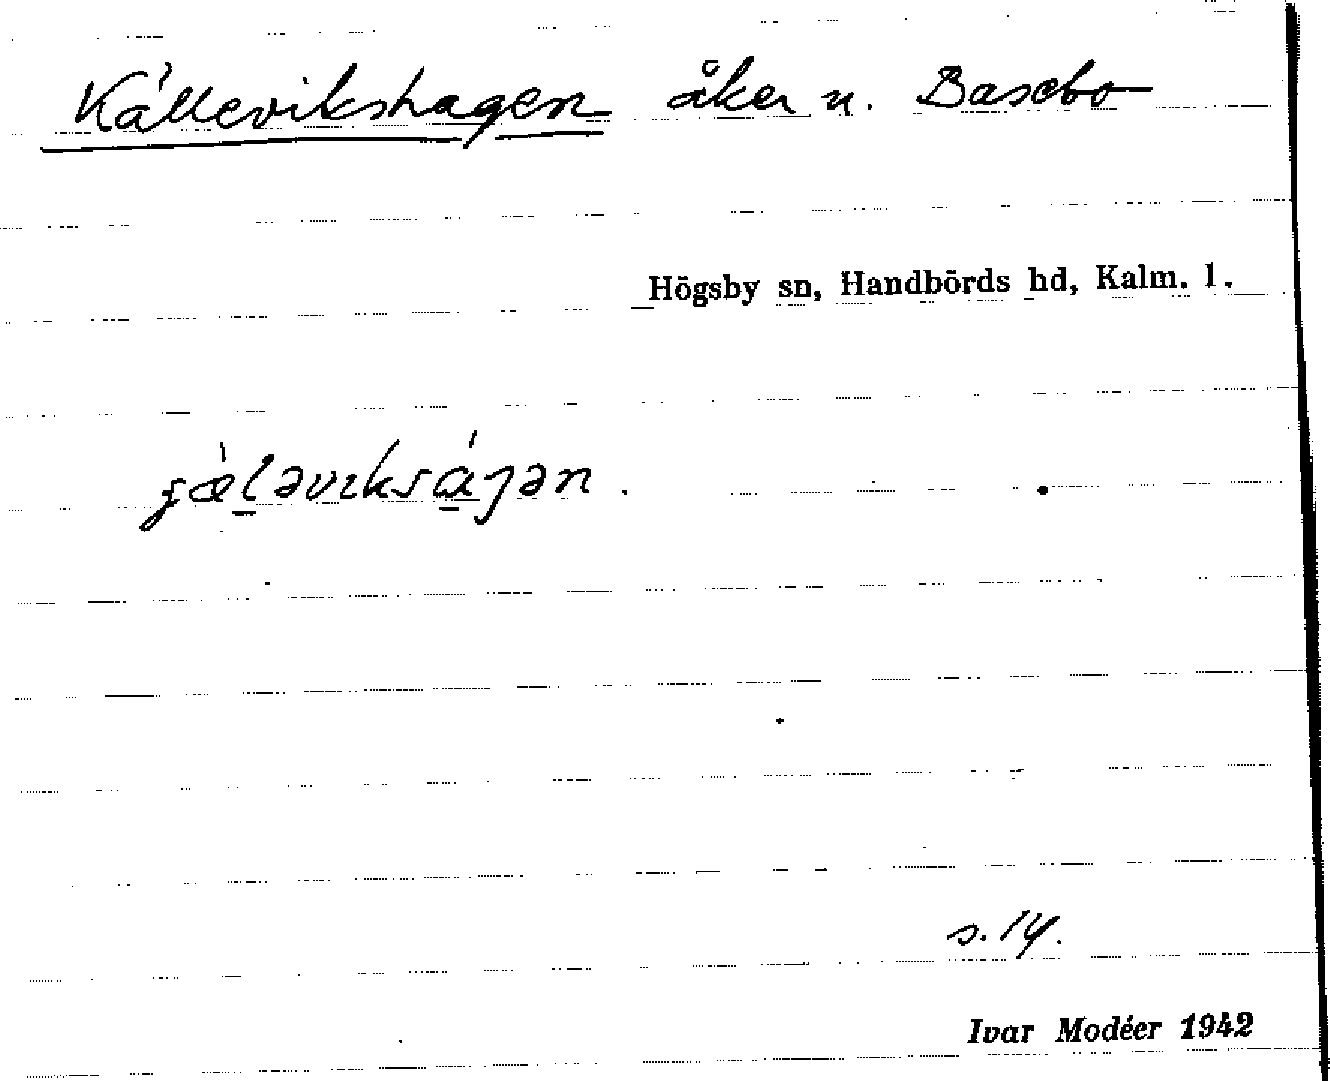 Källevikshagen åker u. Basebo
Högsby sn, Handbörds hd, Kalm. l.
s. 14.
Ivar Modéer 1942